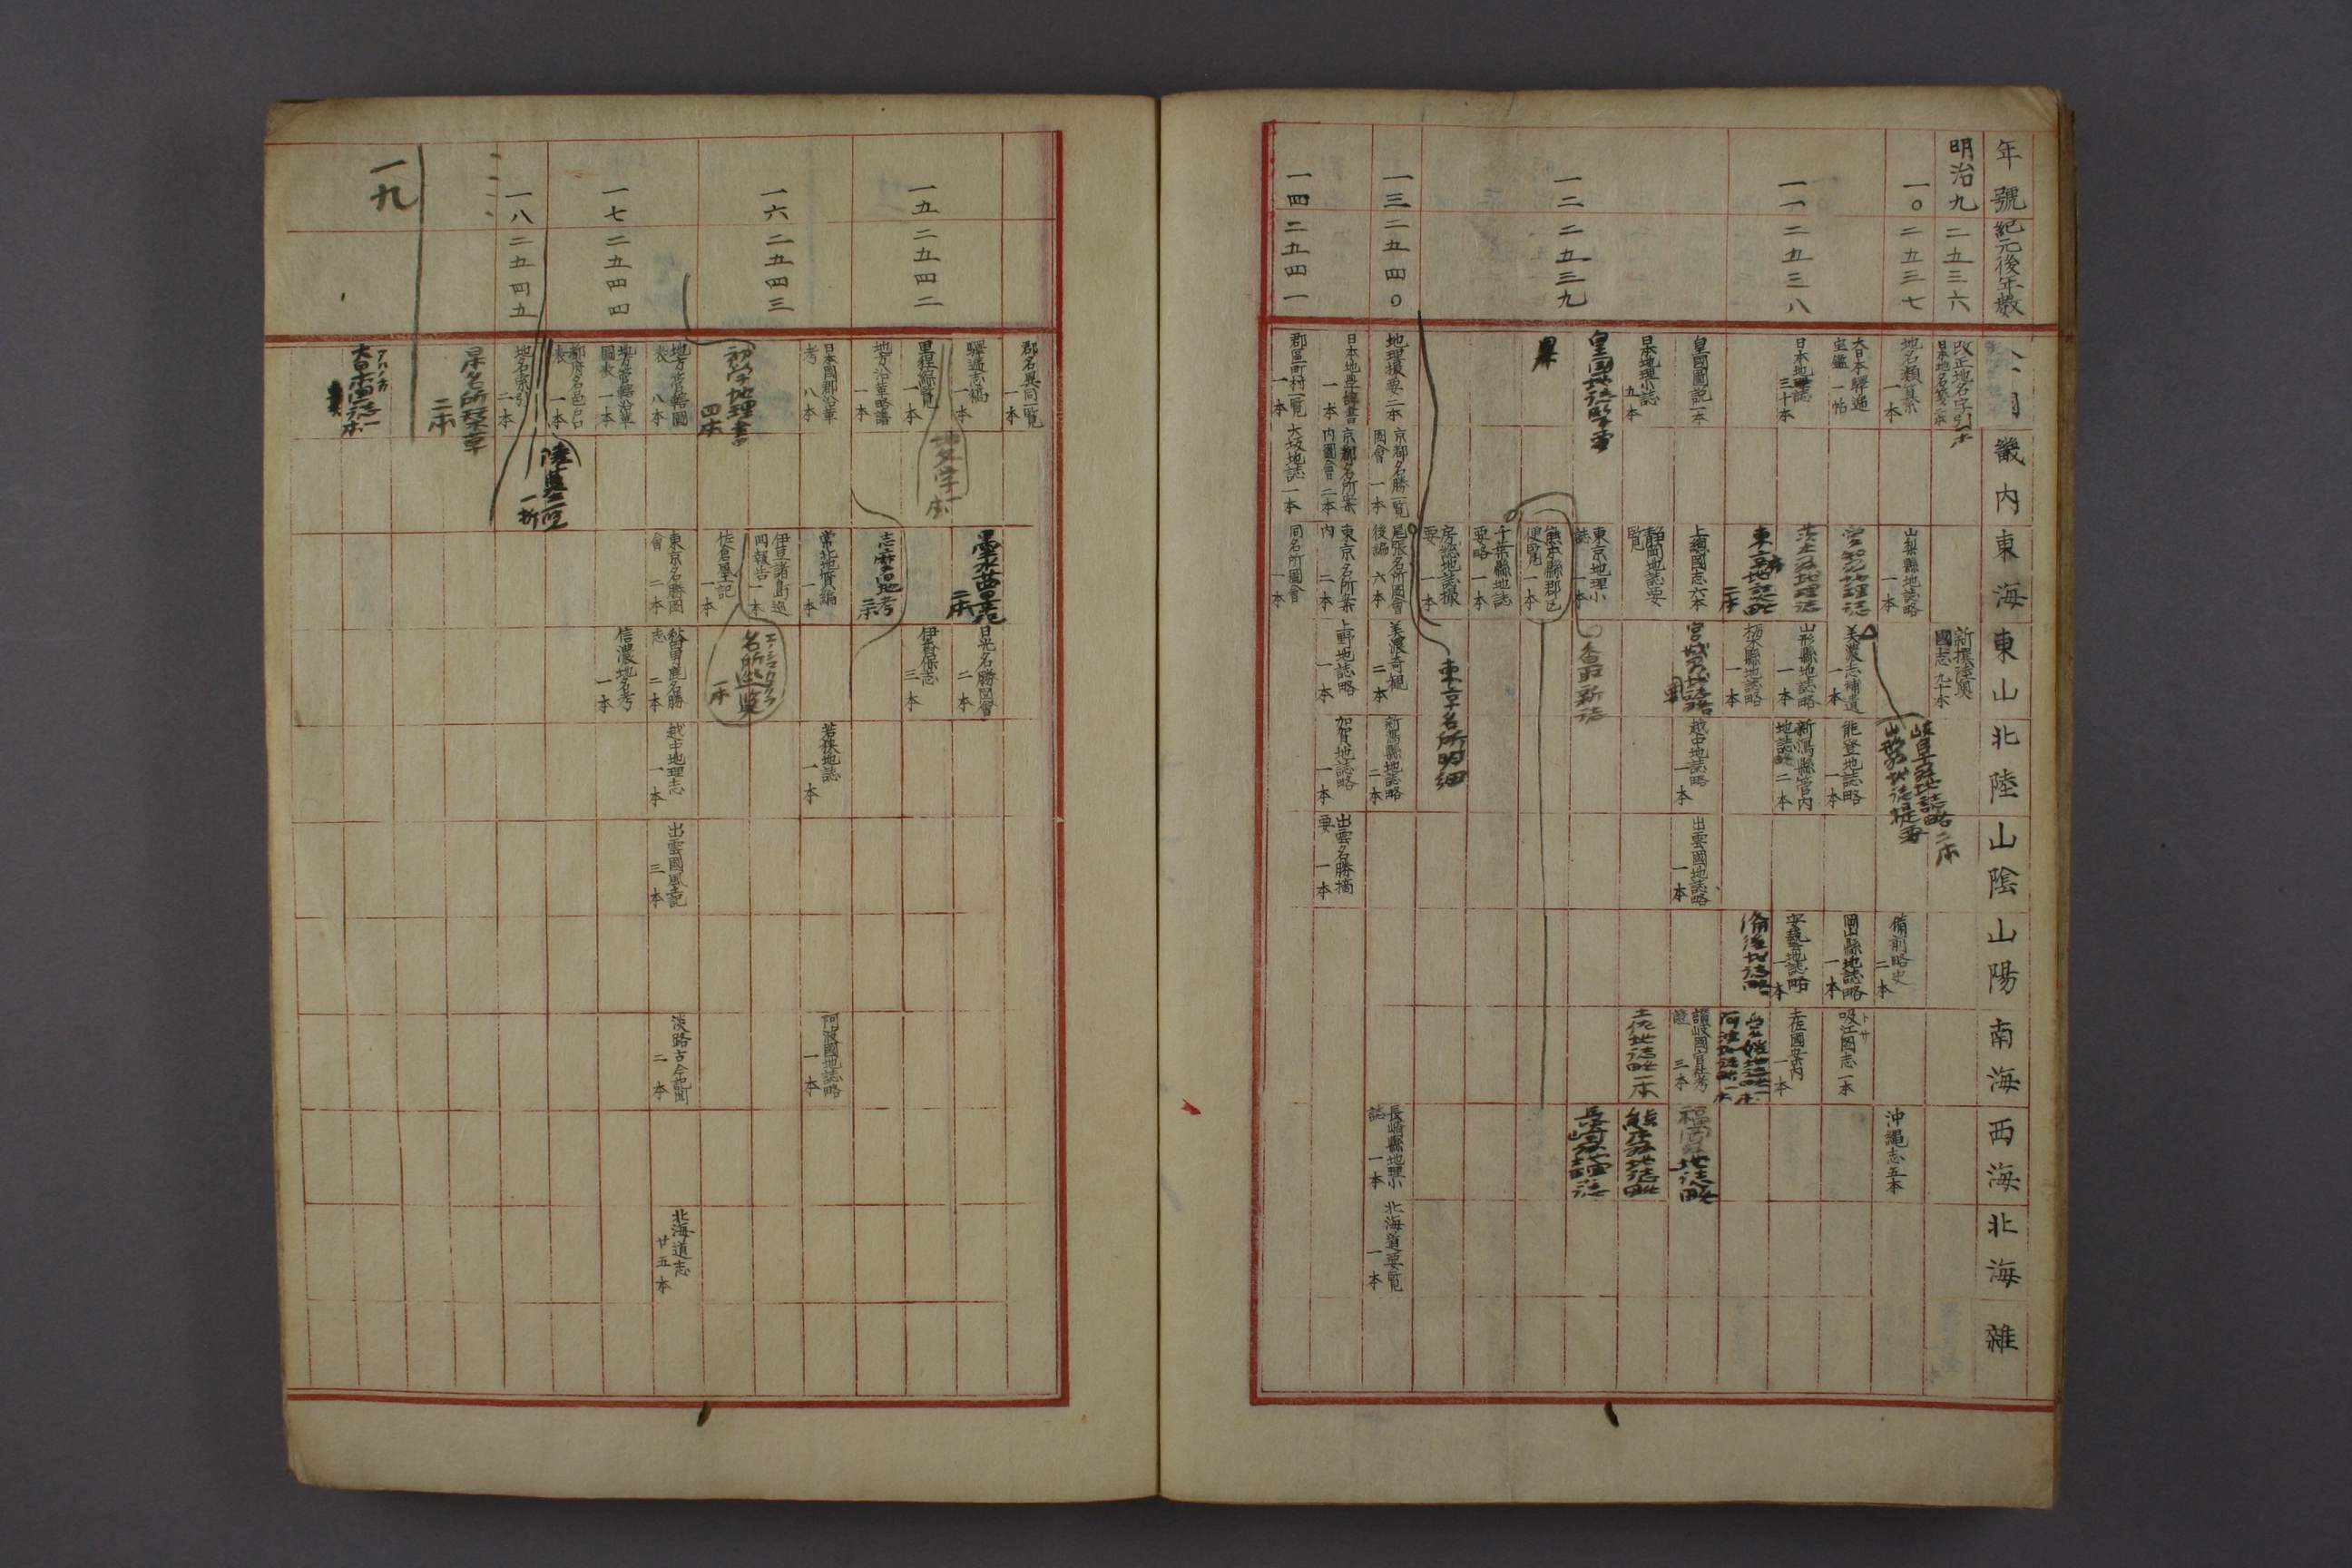 年號
紀元後年數
畿内
東海
東山
北陸
山陰
山陽
南海
西海
北海
雜
明治九
二五三六
改正地名字引
新撰陸奥國志 九十本
一〇
二五三七
地名類纂 一本
山梨縣地誌略 一本
岐阜縣地誌略 二本
備前略史 二本
沖縄志 五本
一一
二五三八
大日本驛逓宝鑑 一帖
美濃志補遺 一本
能登地誌略 一本
岡山縣地誌略 一本
吸江圖志 一本
日本地誌 三十本
山形縣地誌略 一本
新潟縣管内地誌略 二本
安藝地誌略 一本
土佐國案内 一本
東京地誌略 二本
栃木縣地誌略 一本
備後地誌略
一二
二五三九
皇國圖説 一本
上總國志 六本
越中地誌略 一本
出雲國地誌略 一本
讃岐國官社考證 三本
福岡縣地誌略
日本地理小誌 五本
静岡地誌要覧
土佐地誌略 一本
熊本縣地誌略
皇國地誌
東京地理小誌 一本
香取新誌
長崎縣地誌
熊本縣郡區便覧 一本
千葉縣地誌要略 一本
房總地誌撮要 一本
東京名所明細
一三
二五四〇
地理撮要 二本
京都名勝一覧圖會 一本
尾張名所圖會後編 六本
美濃奇観 二本
新潟縣地誌略 二本
長崎縣地理小誌 一本
北海道要覧 一本
日本地輿要書 一本
京都名所案内圖會 二本
東京名所案内 二本
上野地誌略 一本
加賀地誌略 一本
出雲名勝摘要 一本
一四
二五四一
郡區町村一覧 一本
大坂地誌 一本
同名所圖會 一本
郡名異同一覧 一本
一五
二五四二
驛逓志稿 一本
墨水 二本
日光名勝圖會 二本
里程綜覧 一本
伊香保志 三本
地方沿革略譜 一本
志摩國地考
一六
二五四三
日本國郡沿革考 八本
常北地賀編 一本
若狭地誌 一本
阿波國地誌略 一本
伊豆諸島巡囘報告 一本
初学地理書 四本
佐倉墨記 一本
名所
一七
二五四四
地方管轄圖表 八本
東京名勝圖會 二本
秋田男鹿名勝志 二本
越中地理志 一本
出雲國風土記 三本
淡路古今記聞 二本
北海道志 廿五本
地方管轄沿革圖表 一本
信濃地名考 一本
都府名邑戸口表 一本
一八
二五四五
地名索引 二本
日本名所 二本
一九
大日本國誌 一本